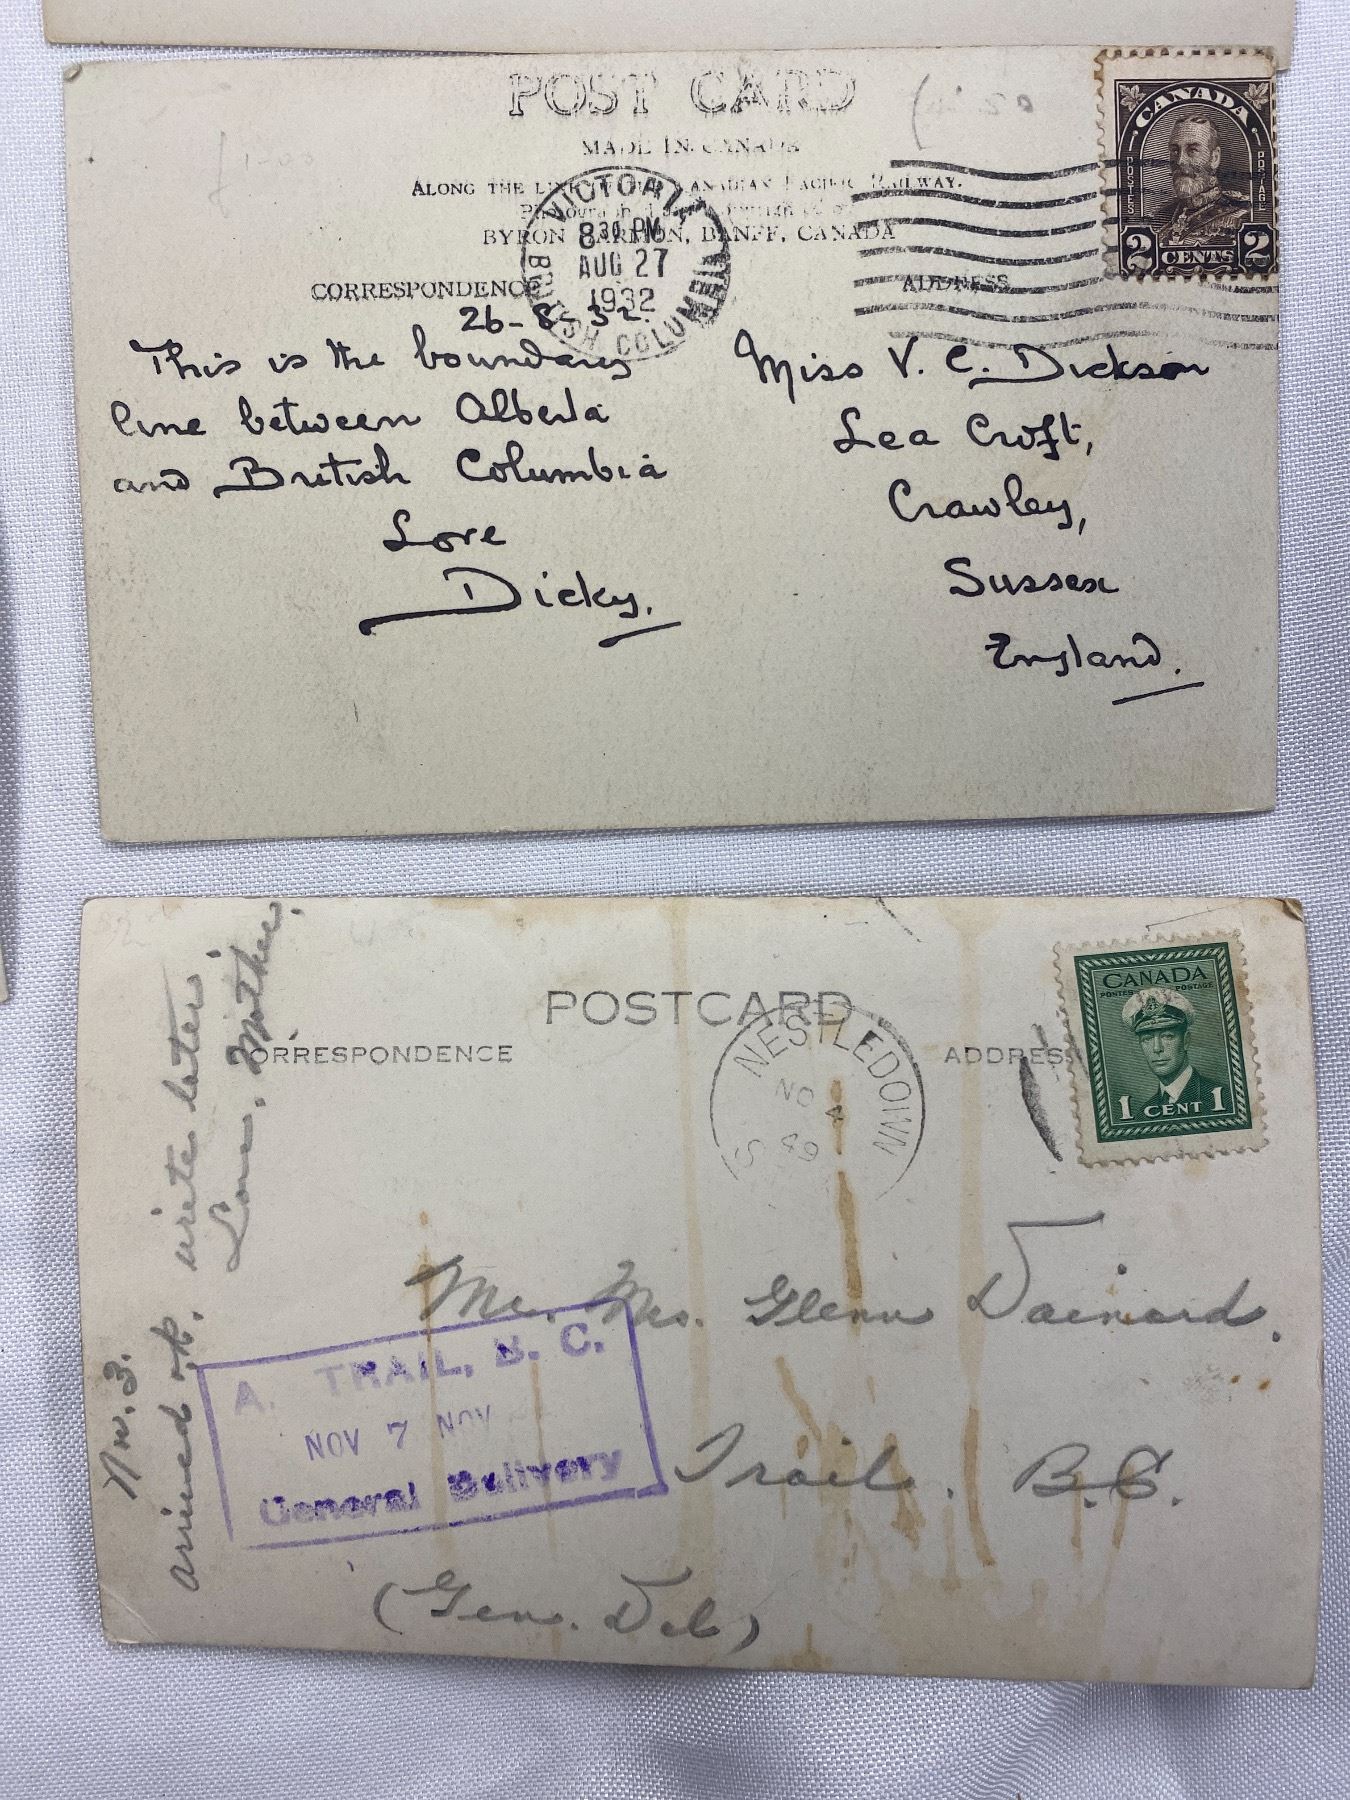 POST CARD
MADE IN CANADA
ALONG THE LINE CANADIAN PACIFIC RAILWAY.
BYRON HARMON, BANFF, CANADA
CANADA
POSTES POSTAGE
2 CENTS 2
VICTORIA
8 30 PM
AUG 27
1932
BRITISH COLUMBIA
CORRESPONDENCE
ADDRESS
26-8-32.
This is the boundary
line between Alberta
and British Columbia
Love
Dicky.
Miss V. C. Dickson
Lea Croft,
Crawley,
Sussex
England.
POSTCARD
CORRESPONDENCE
ADDRESS
CANADA
POSTES POSTAGE
1 CENT 1
NESTLEDOWN
NO 4
Nov. 3.
arrived ok. write later.
Love, Mother.
Mr. Mrs. Glenn Dainard.
Trail. B.C.
(Gen. Del)
A. TRAIL, B. C.
NOV 7 NOV
General Delivery